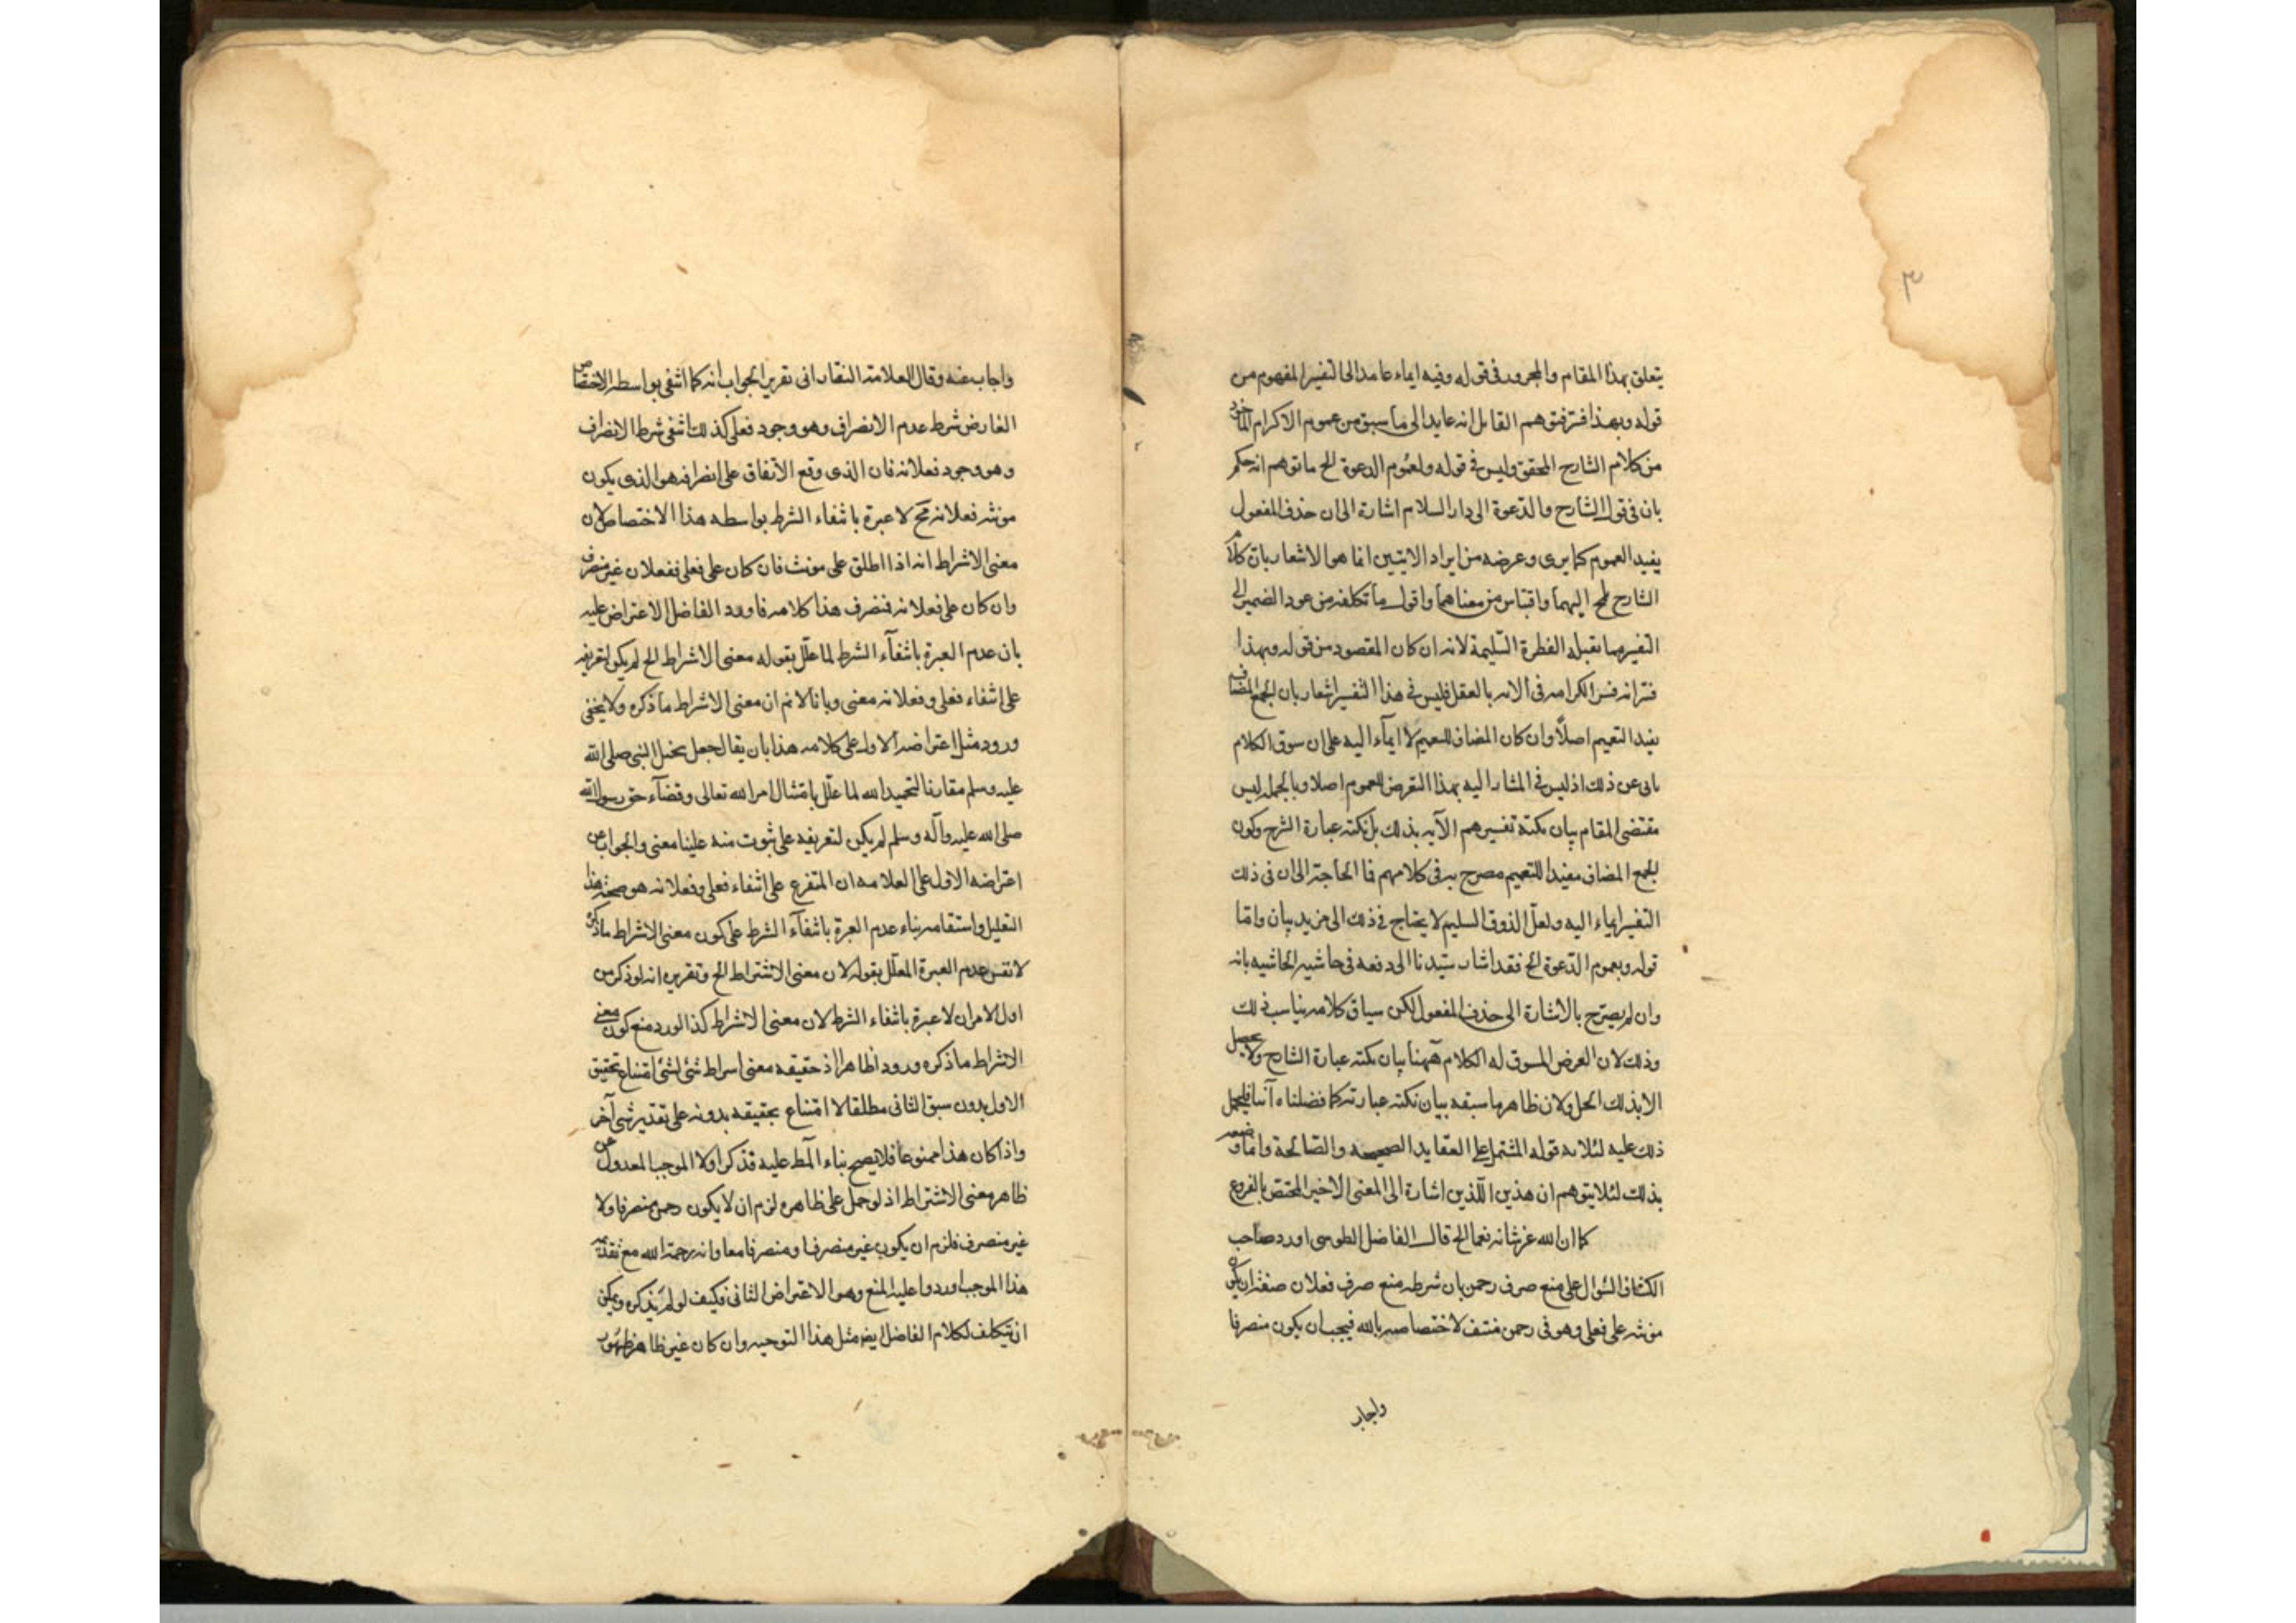 ٣
يتعلق بهذا المقام والمجرور في قوله وفيه ايماء عايد الى التفسير المفهوم من
قوله وبهذا فسر فتوهم القايل انه عايد الى ما سبق من عموم الاكرام الماخوذ
من كلام الشارح المحقق وليس في قوله ولعموم الدعوة الخ ما توهم انه حكم
بان في قول الشارح والدعوة الى دار السلام اشارة الى ان حذف المفعول
يفيد العموم كما يرى وغرضه من ايراد الايتين انما هو الاشعار بان كلام
الشارح تلميح اليهما واقتباس من معناهما واقول ما تكلفه من عود الضمير الى
التفسير مما تقبله الفطرة السليمة لانه ان كان المقصود من قوله وبهذا
فسر انه فسر الكرامه في الايه بالعقل فليس في هذا التفسير اشعار بان الجمع المضاف
يفيد التعميم اصلاً وان كان المضاف للتعميم لا ايماء اليه على ان سوق الكلام
يابى عن ذلك اذ ليس في المشار اليه بهذا التعرض للعموم اصلا وبالجمله ليس
مقتضى المقام بيان نكتة تفسيرهم الآيه بذلك بل نكته عبارة الشرح وكون
الجمع المضاف مفيدا للتعميم مصرح به في كلامهم فما الحاجة الى ان في ذلك
التفسير ايماء اليه ولعل الذوق السليم لا يحتاج في ذلك الى مزيد بيان واما
قوله وبعموم الدعوة الخ فقد اشار سيدنا الى دفعه في حاشيه الحاشيه بانه
وان لم يصرح بالاشارة الى حذف المفعول لكن سياق كلامه يناسب ذلك
وذلك لان الغرض المسوق له الكلام ههنا بيان نكته عبارة الشارح ولا يحصل
الا بذلك الحل ولان ظاهر ما سبقه بيان نكته عبارته كما فصلناه آنفا فليحمل
ذلك عليه لئلا قوله المشتمل على العقايد الصحيحه والصالحة وانما وصفه
بذلك لئلا يتوهم ان هذين اللذين اشارة الى المعنى الاخير المختص بالفروع
كما ان الله عز شانه نعما الخ قال الفاضل الطوسى اورد صاحب
الكشاف السؤال على منع صرف رحمن بان شرطه منع صرف فعلان صفة ان يكون
مونثه على فعلى وهو في رحمن منتف لاختصاصه بالله فيجب ان يكون منصرفا
واجاب
واجاب عنه وقال العلامة التفتازانى تقرير الجواب انه كما انتفى بواسطه الاختصاص
العارض شرط عدم الانصراف وهو وجود فعلى كذلك انتفى شرط الانصراف
وهو وجود فعلانه فان الذى وقع الاتفاق على انصرافه هو الذى يكون
مونثه فعلانه فح لا عبرة بانتفاء الشرط بواسطه هذا الاختصاص لان
معنى الاشراط انه اذا اطلق على مونث فان كان على فعلى ففعلان غير منصرف
وان كان على فعلانه فنصرف هذا كلامه فاورد الفاضل الاعتراض عليه
بان عدم العبرة بانتفآء الشرط لما علل بقوله معنى الاشراط الخ لم يكن لتعريفه
على انتفاء فعلى وفعلانه معنى وبانا لا نم ان معنى الاشراط ما ذكره ولا يخفى
ورود مثل اعتراضه الاول على كلامه هذا بان يقال جعل النبى صلى الله
عليه وسلم مقارنا لتحميد الله لما علل بامتثال امر الله تعالى وقضآء حق رسول الله
صلى الله عليه وآله وسلم لم يكن لتعريفه على ثبوت منه علينا معنى والجواب عن
اعتراضه الاول على العلامه ان المتفرع على انتفاء فعلى وفعلانه هو صحة هذا
التعليل واستقامه بناء عدم العبرة بانتفآء الشرط على كون معنى الاشراط ما ذكره
لا نفس عدم العبرة المعلل بقوله لان معنى الاشتراط الخ وتقريره انه لو ذكر من
اول الامر ان لا عبرة بانتفاء الشرط لان معنى الاشراط كذا لورد منع كون معنى
الاشراط ما ذكره ورودا ظاهرا اذ حقيقه معنى اشراط شئ لشئ امتناع تحقيق
الاول بدون سبق الثانى مطلقا لا امتناع تحقيقه بدونه على تقدير شئ آخر
واذا كان هذا ممنوعا فلا يصح بناء المط عليه فذكر اولا الموجب المعدول عن
ظاهر معنى الاشتراط اذ لو حمل على ظاهره لزم ان لا يكون رحمن منصرفا ولا
غير منصرف فلزم ان يكون غير منصرف ومنصرفا معا وانه رحمة الله مع تقدمه
هذا الموجب اوردوا عليه المنع وهو الاعتراض الثانى فكيف لو لم يذكره ويمكن
ان يتكلف لكلام الفاضل ايضه مثل هذا التوجيه وان كان غير ظاهر